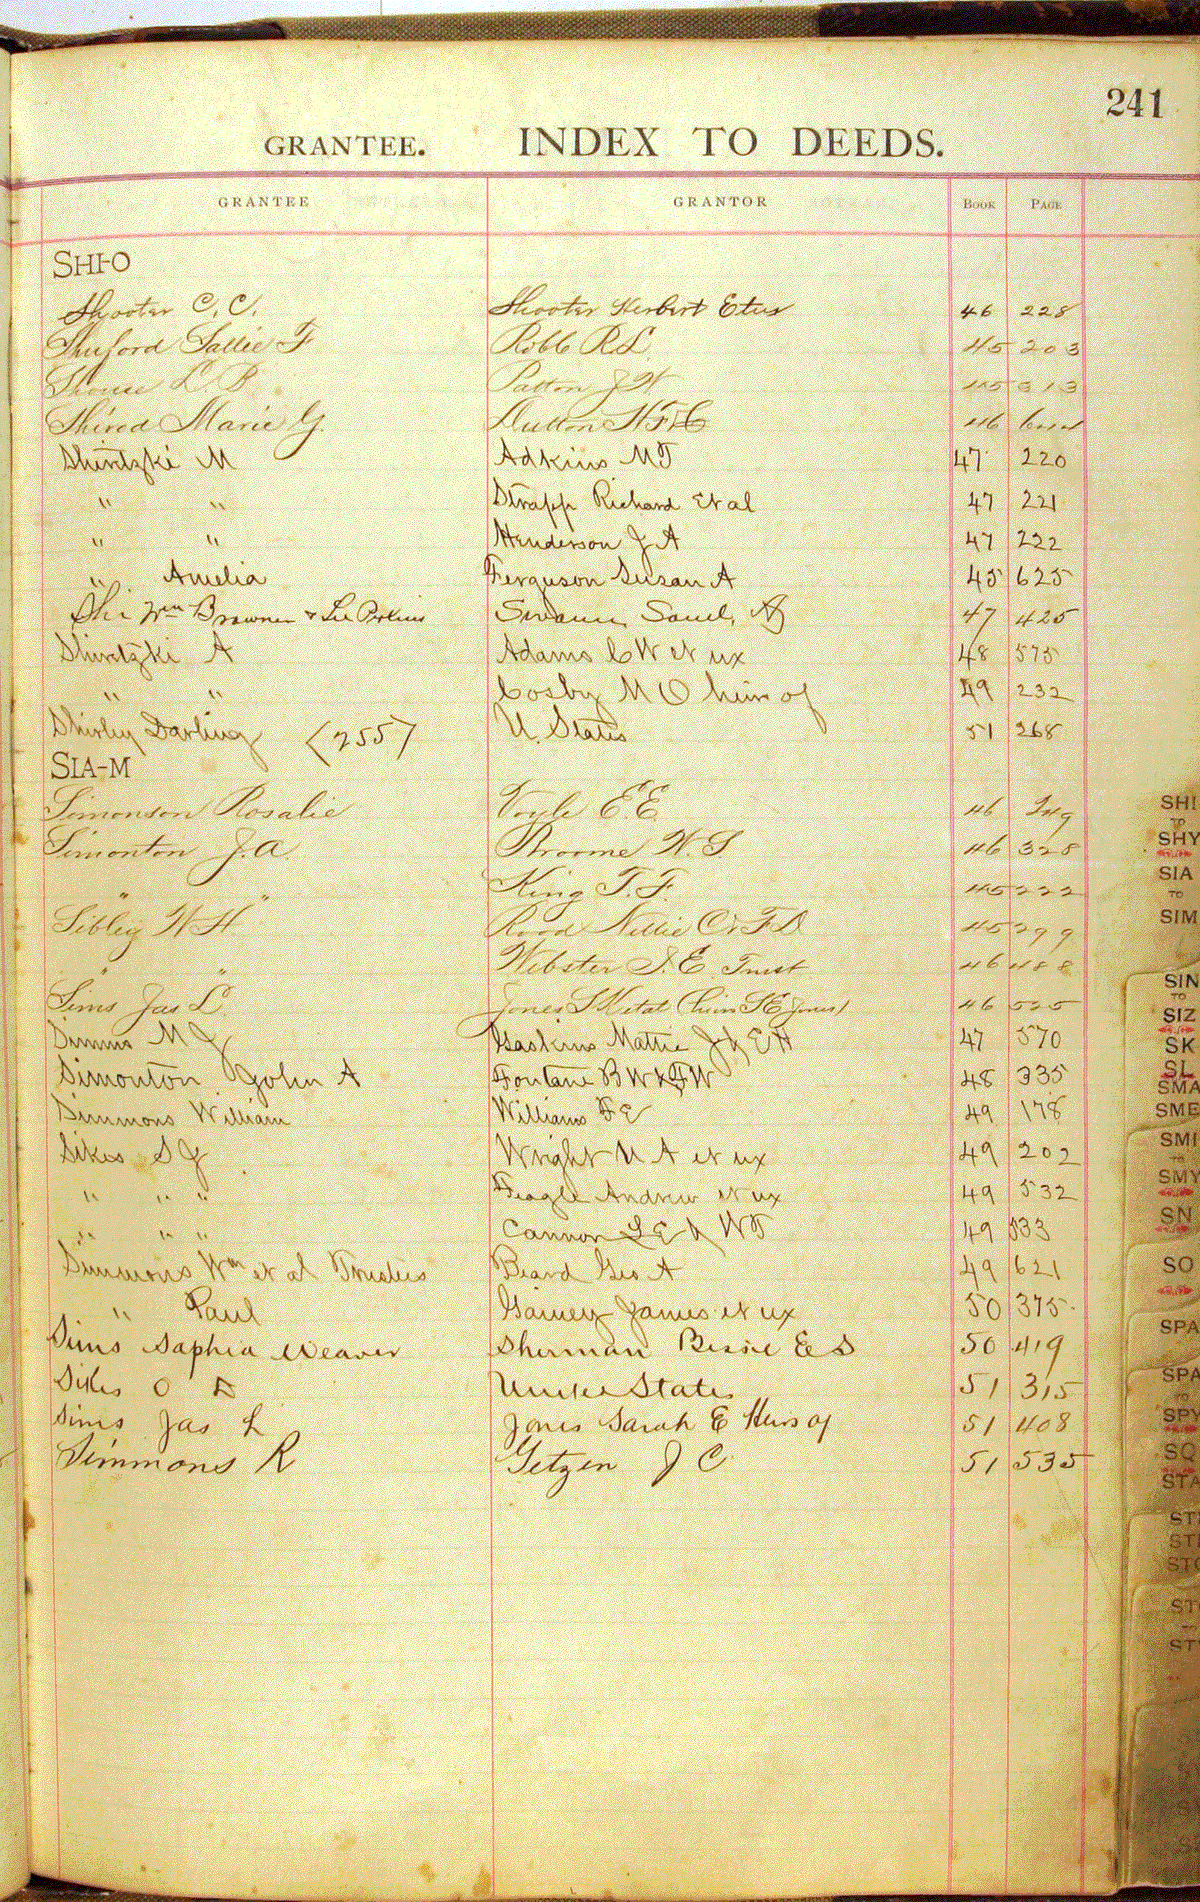 241
GRANTEE. INDEX TO DEEDS.
GRANTEE GRANTOR BOOK PAGE
SHI-O
Shooter C. C. Shooter Herbert Etux 46 228
Shuford Sallie F Robb R.S. 45 203
Shouse L. B. Patton J W 45 313
Marie G. Dutton 46
Shivetzki M Adkins M J 47 220
" " Strapp Richard Et al 47 221
" " Henderson J A 47 222
" Amelia Ferguson Susan A 45 625
Shi Wm Browner & Lee Perkins Swann Saml, 47 425
Shivetzki A Adams C W et ux 48 575
" " Cosby M O heirs of 49 232
Shirley Darling (255) U. States 51 268
SIA-M
Simonson Rosalie Voyle E. E. 46
Simonton J. A. Broome W. S. 46 328
" " King T. F. 45 222
Sibley W H Rood Nellie C & F D 45 299
" " Webster J. E Trust 46 488
Sims Jas L. Jones S M et al (heirs S E Jones) 46 525
Simms M J Gaskins Mattie J & E H 47 570
Simonton John A Fontane B W & F W 48 335
Simmons William Williams F E 49 178
Sikes S J Wright U A et ux 49 202
" " " Feagle Andrew et ux 49 532
" " " Cannon W T 49 533
Simmons Wm et al Trustees Beard Geo A 49 621
" Paul Gainey James et ux 50 375
Sims Saphia Weaver Sherman Bessie E S 50 419
Sikes O D United States 51 315
Sims Jas L Jones Sarah E Heirs of 51 408
Simmons R Getzen J C 51 535
SHI
TO
SHY
SIA
TO
SIM
SIN
TO
SIZ
SK
SL
SMA
SME
SMI
TO
SMY
SN
SO
SPA
SPA
TO
SPY
SQ
STA